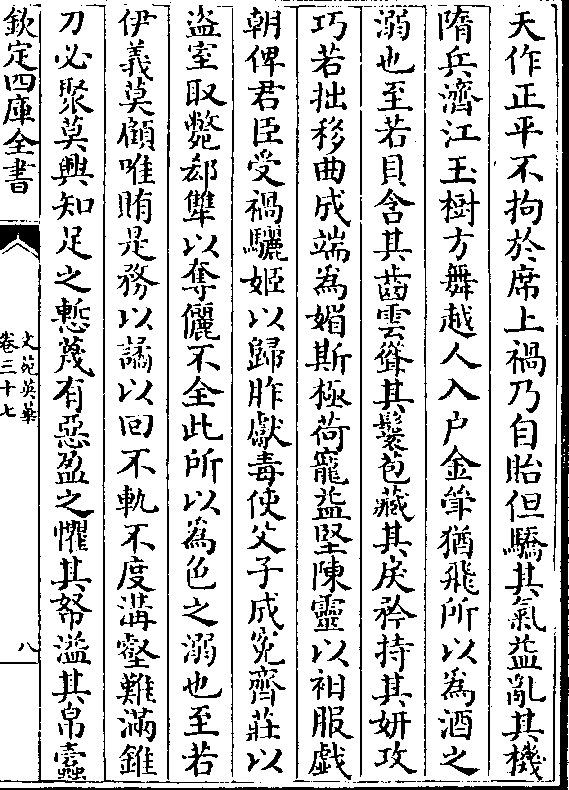 天作正平不拘於席上禍乃自貽但驕其氣益亂其機
隋兵濟江玉樹方舞越人入户金觴猶飛所以為酒之
溺也至若貝含其齒雲聳其鬟苞藏其戾矜持其妍攻
巧若拙移曲成端為媚斯極荷寵益堅陳靈以衵服戯
朝俾君臣受禍驪姬以歸胙獻毒使父子成寃齊莊以
盜室取斃郄犨以奪儷不全此所以為色之溺也至若
伊義莫顧唯賄是務以譎以回不軌不度溝壑難滿錐
刀必聚莫興知足之慙蔑有惡盈之懼其帑溢其帛蠹
欽定四庫全書
文苑英華
卷三十七
八